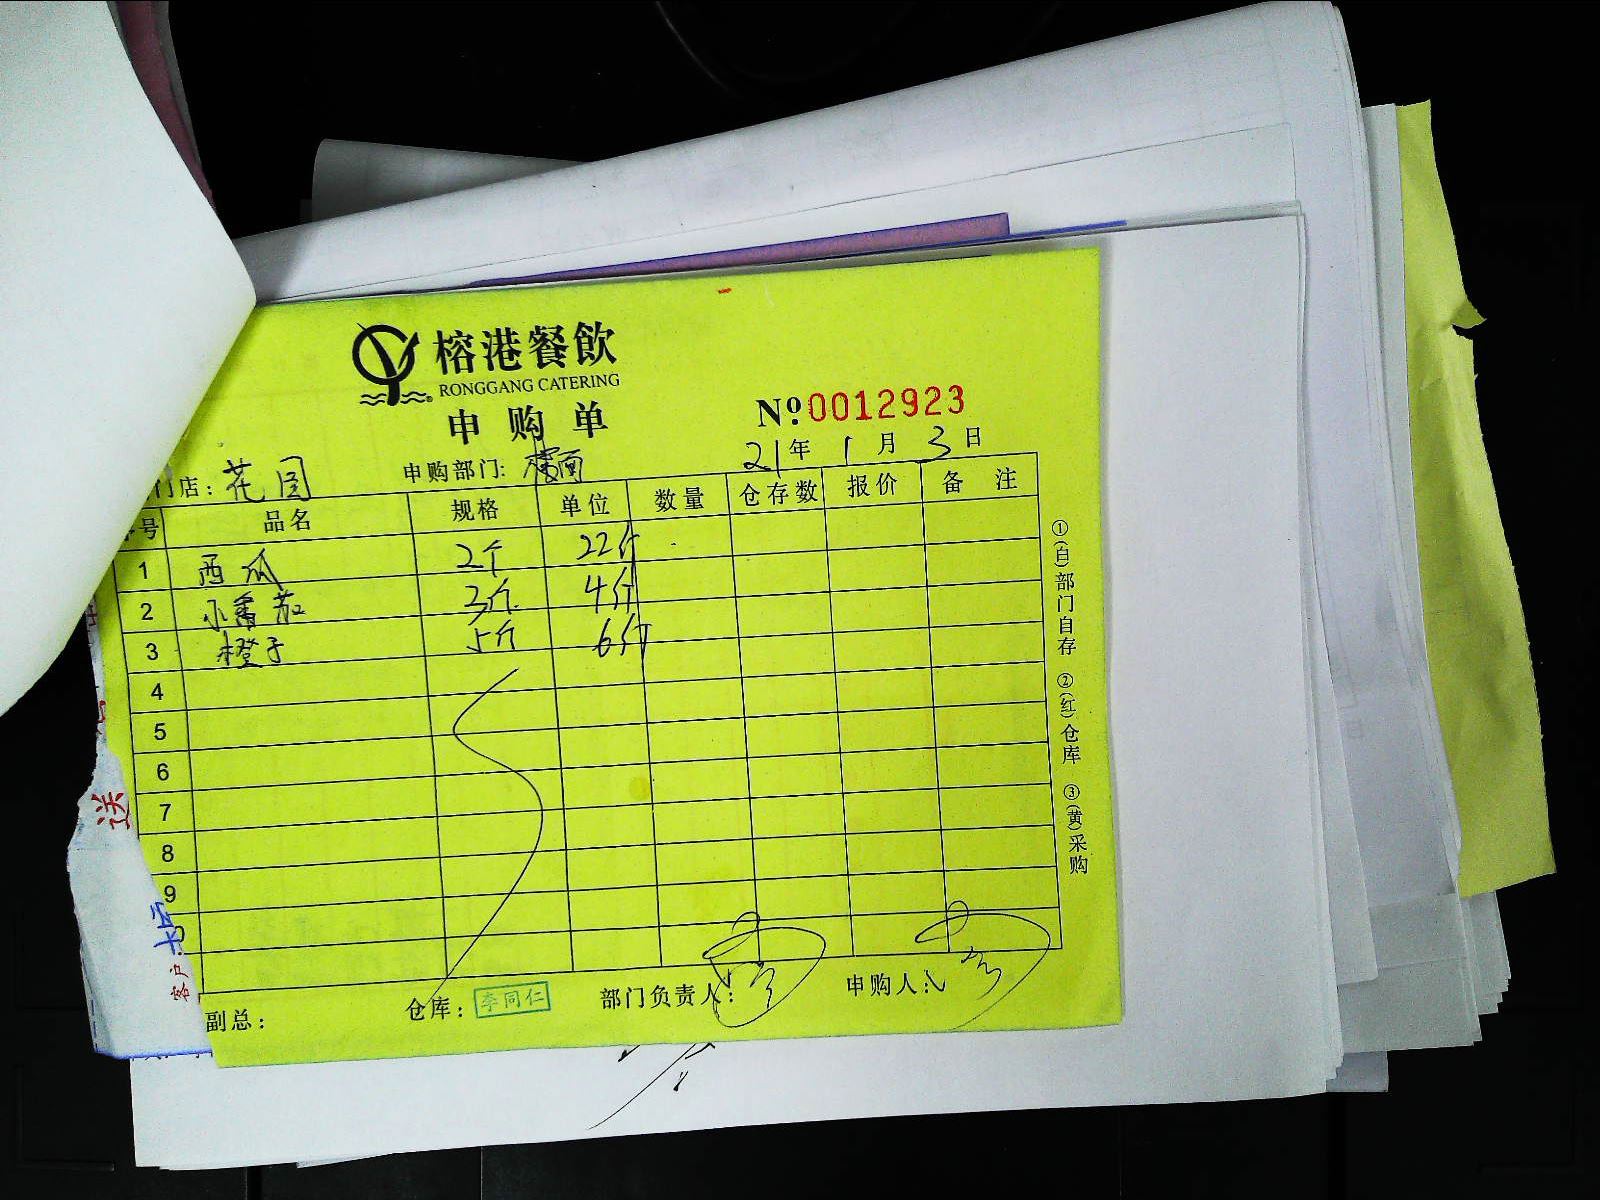 榕港餐飲
RONGGANG CATERING
申购单
№0012923
21年1月3日
门店：花园 申购部门：楼面
号 品名 规格 单位 数量 仓存数 报价 备注
1 西瓜 2个 22斤
2 小番茄 3斤 4斤
3 橙子 5斤 6斤
4
5
6
7
8
9
副总： 仓库：李同仁 部门负责人： 申购人：
①(白)部门自存 ②(红)仓库 ③(黄)采购
送
客户